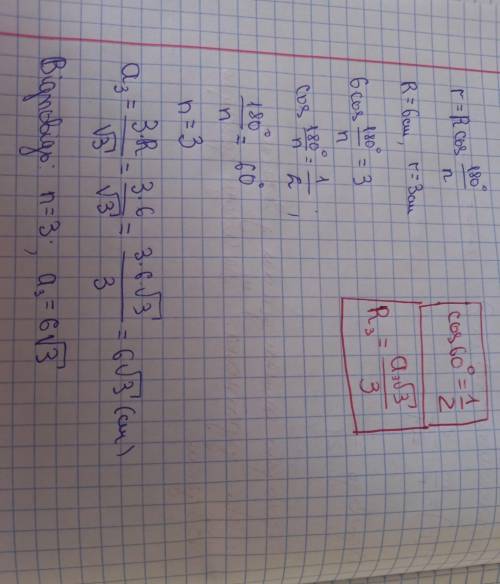 r = R cos 180°/n
R = 6 см, r = 3 см
6 cos 180°/n = 3
cos 180°/n = 1/2;
180°/n = 60°
n = 3
a₃ = 3·R/√3 = 3·6/√3 = 3·6√3/3 = 6√3 (см)
Відповідь: n = 3; a₃ = 6√3
cos 60° = 1/2
R₃ = a₃√3/3